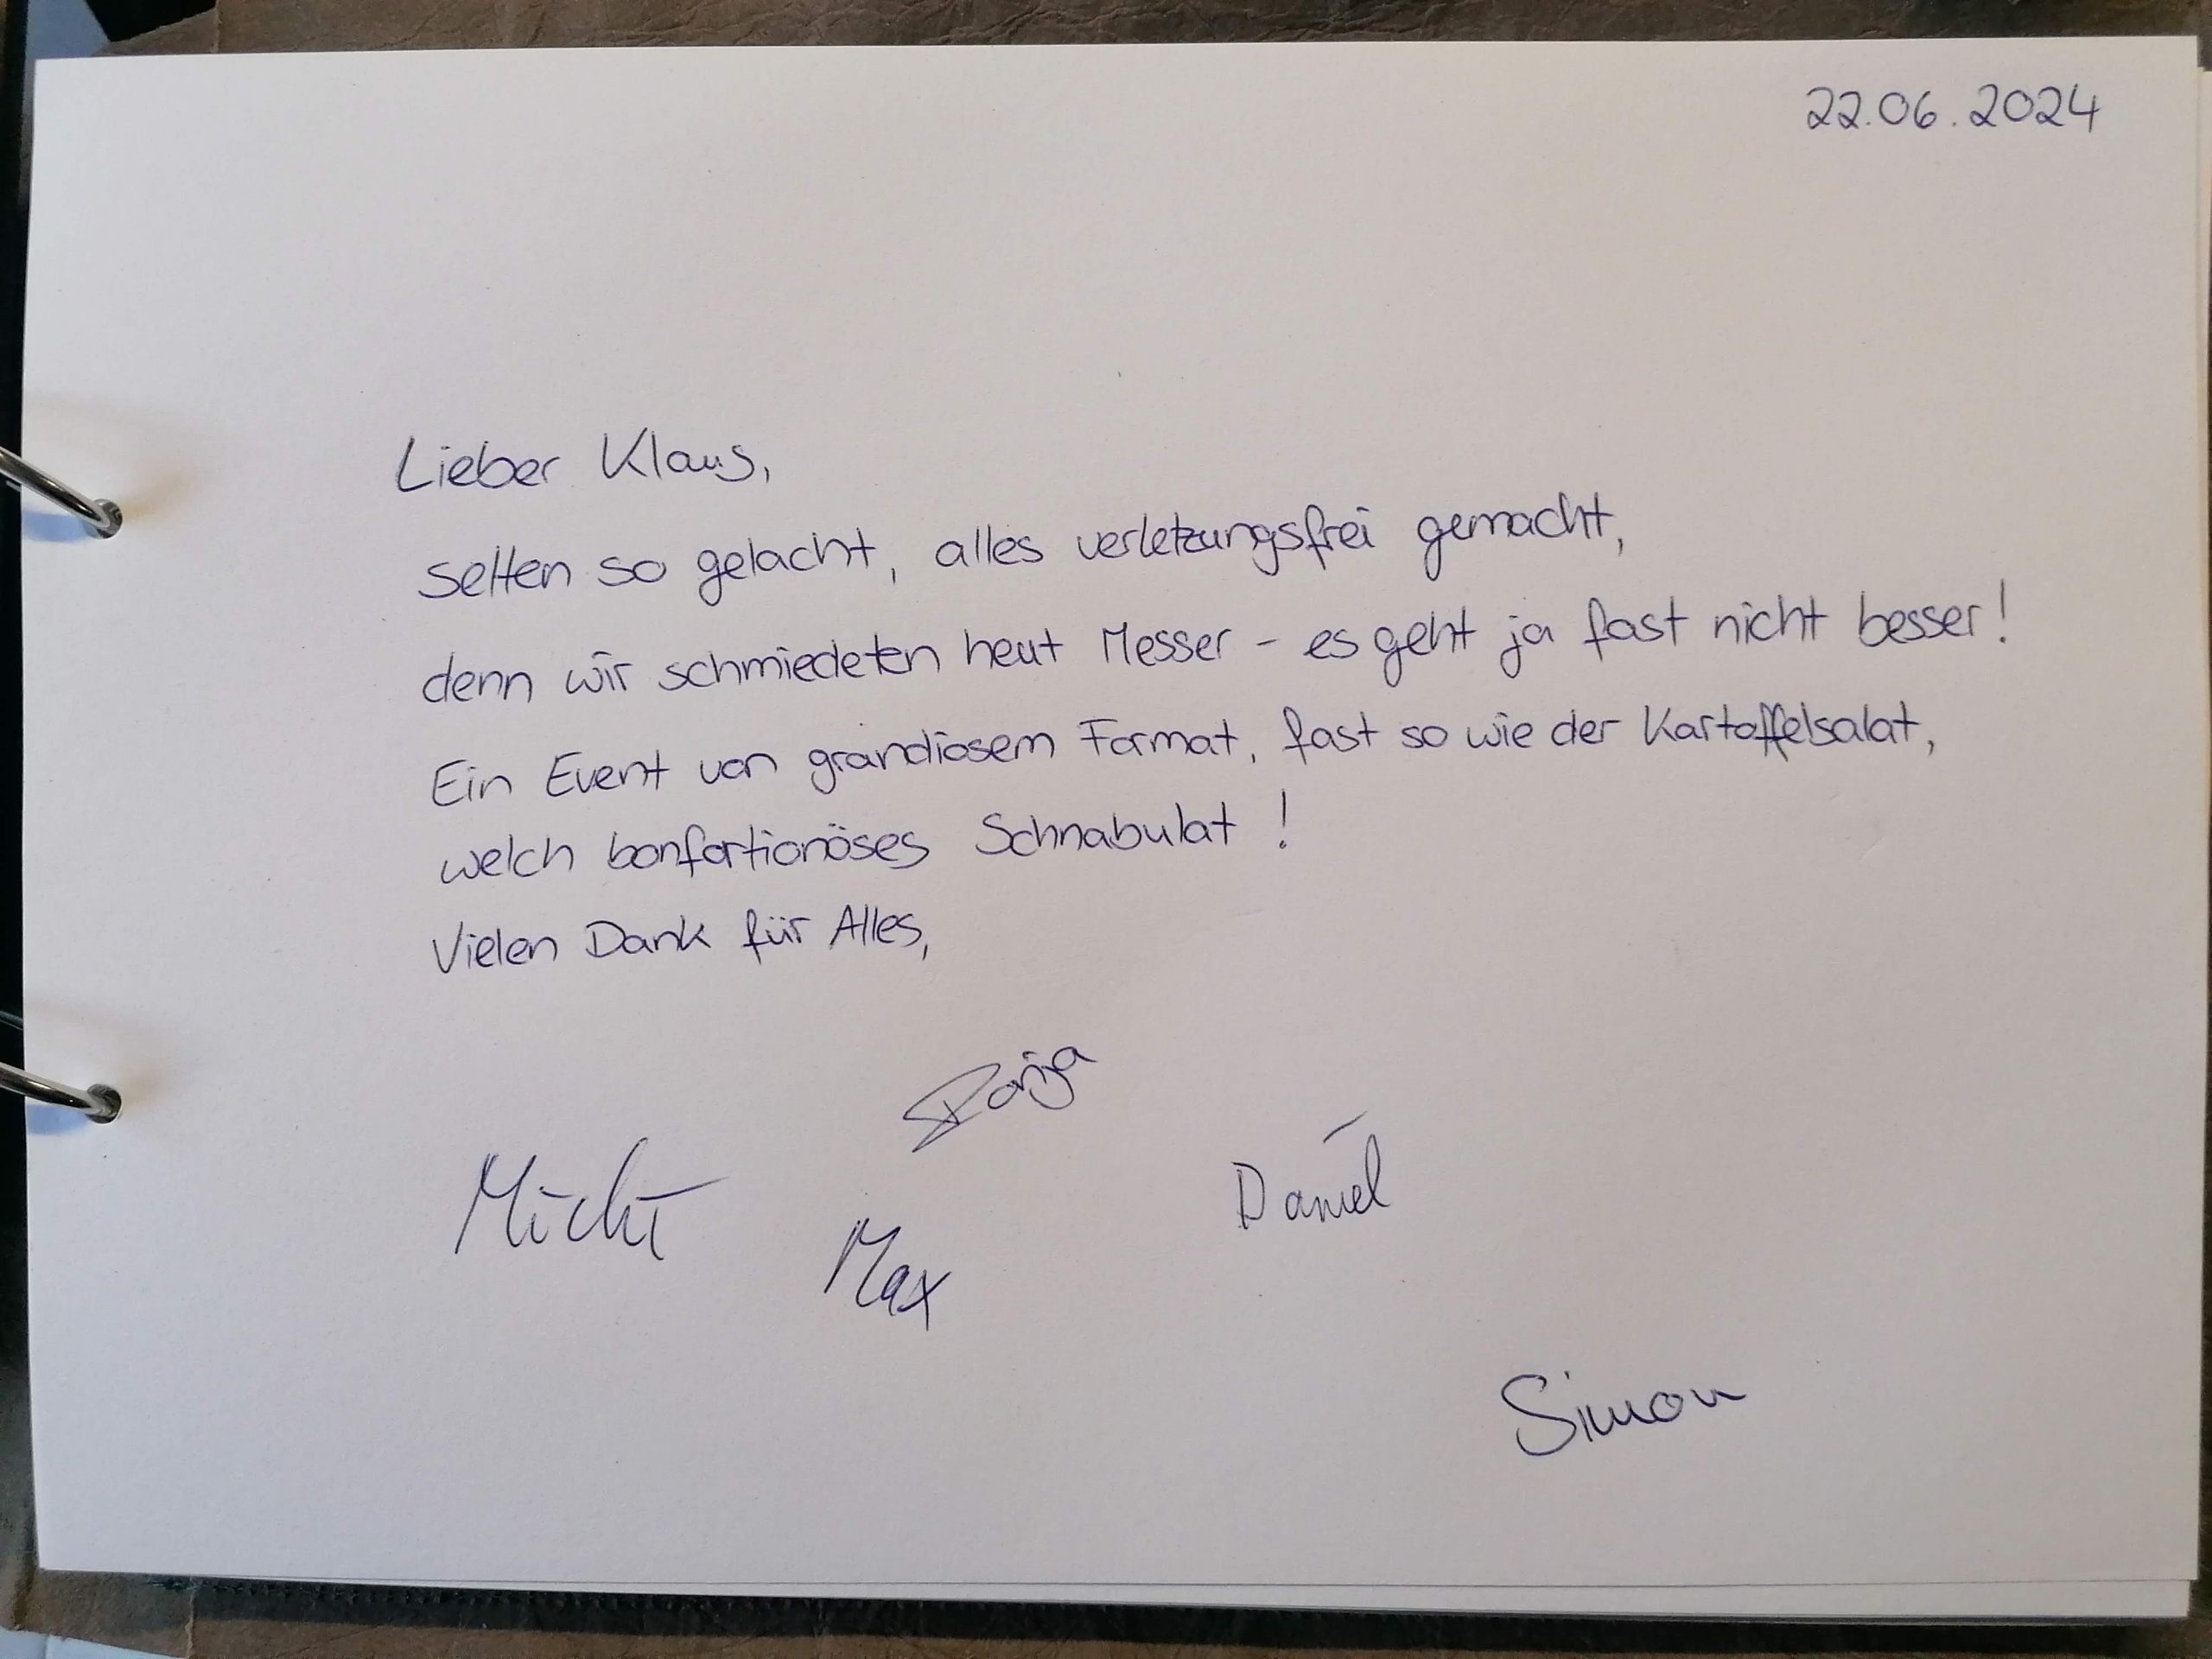 22.06.2024
Lieber Klaus,
selten so gelacht, alles verletzungsfrei gemacht,
denn wir schmiedeten heut Messer - es geht ja fast nicht besser!
Ein Event von grandiosem Format, fast so wie der Kartoffelsalat,
welch bonfortionöses Schnabulat!
Vielen Dank für Alles,
Michi
Max
Daniel
Simon